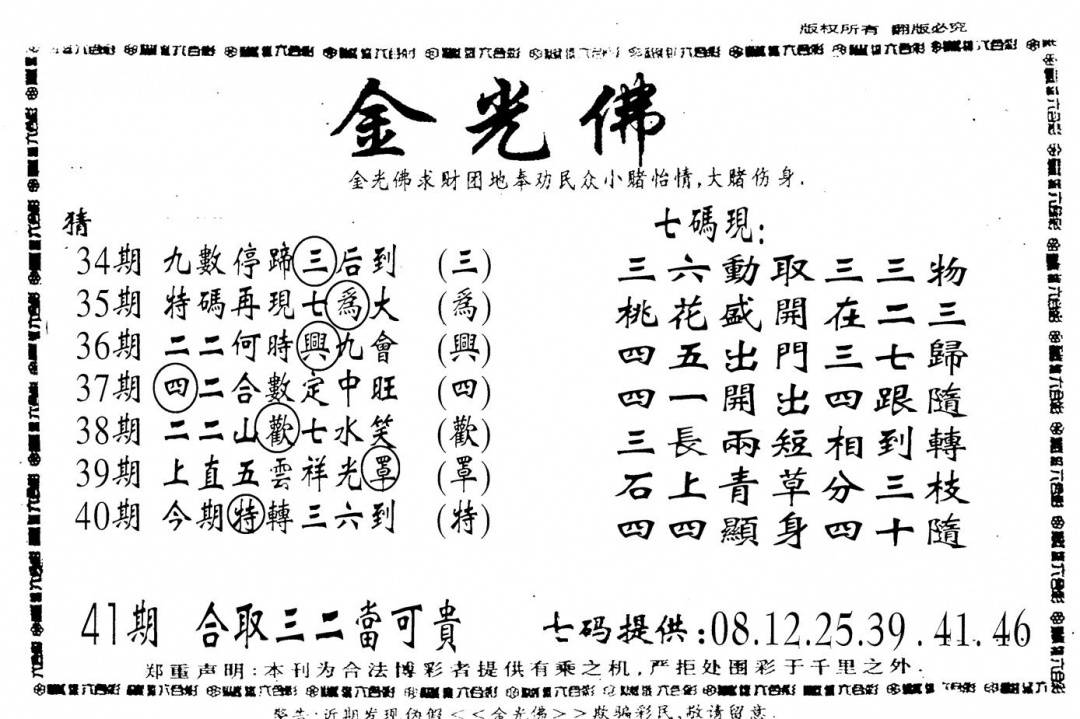 版权所有 翻版必究
金光佛
金光佛求财团地奉劝民众小赌怡情,大赌伤身.
猜
34期 九數停蹄三后到 (三)
35期 特碼再現七爲大 (爲)
36期 二二何時興九會 (興)
37期 四二合數定中旺 (四)
38期 二二山歡七水笑 (歡)
39期 上直五雲祥光罩 (罩)
40期 今期特轉三六到 (特)
七碼現:
三六動取三三物
桃花盛開在二三
四五出門三七歸
四一開出四跟隨
三長兩短相到轉
石上青草分三枝
四四顯身四十隨
41期 合取三二當可貴
七码提供:08.12.25.39.41.46
郑重声明:本刊为合法博彩者提供有乘之机,严拒处围彩于千里之外.
警告:近期发现伪假<<金光佛>>欺骗彩民,敬请留意.